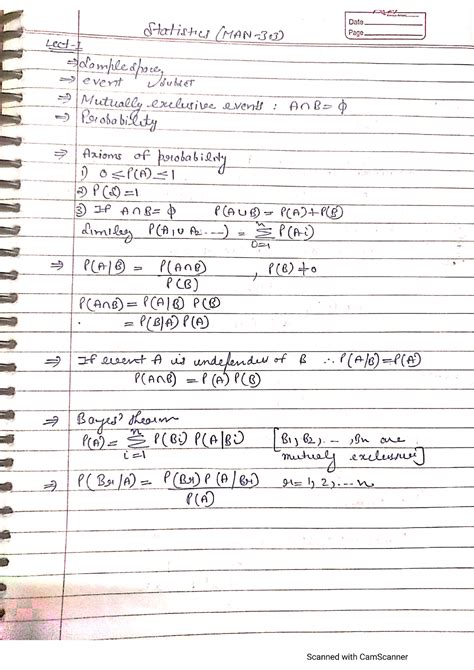 Date
Page
Statistics (MAN-303)
Lect-1
⇒ Sample space
⇒ event ✓subset
⇒ Mutually exclusive events : A∩B = ϕ
⇒ Probability
⇒ Axioms of probability
1) 0 ≤ P(A) ≤ 1
2) P(Ω) = 1
3) If A∩B = ϕ P(A∪B) = P(A)+P(B)
Similey P(A₁ ∪ A₂ ....) = n Σ 0=1 P(Ai)
⇒ P(A|B) = P(A∩B) / P(B) , P(B) ≠ 0
P(A∩B) = P(A|B) P(B)
= P(B|A) P(A)
⇒ If event A is of B ∴ P(A|B) = P(A)
P(A∩B) = P(A) P(B)
⇒ Bayes' theorm
P(A) = n Σ i=1 P(Bi) P(A|Bi) [B₁, B₂, ..., Bn are
mutualy exclussive]
⇒ P(Br|A) = P(Br) P(A|Br) / P(A) r = 1, 2, ... n
Scanned with CamScanner